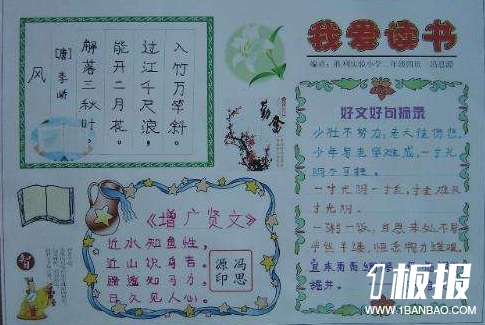 我爱读书
编者：胜利实验小学二年级四班 冯思源
风
〔唐〕李峤
解落三秋叶，
能开二月花。
过江千尺浪，
入竹万竿斜。
勤奋
智
《增广贤文》
近水知鱼性，
近山识鸟音。
路遥知马力，
日久见人心。
冯思
源印
好文好句摘录
少壮不努力，老大徒伤悲。
少年易老学难成，一寸光
阴不可轻。
一寸光阴一寸金，寸金难买
寸光阴。
一粥一饭，当思来处不易，
半丝半缕，恒念物力维艰。
宜未雨而绸缪，
掘井。
1板报
WWW.1BANBAO.COM